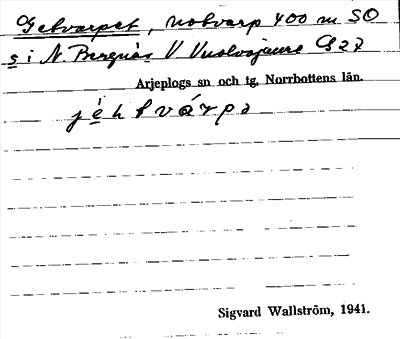 Getvarpet, notvarp 400 m SO
s i N. Bergnäs V Vuolvojaure G27
Arjeplogs sn och tg, Norrbottens län.
Sigvard Wallström, 1941.